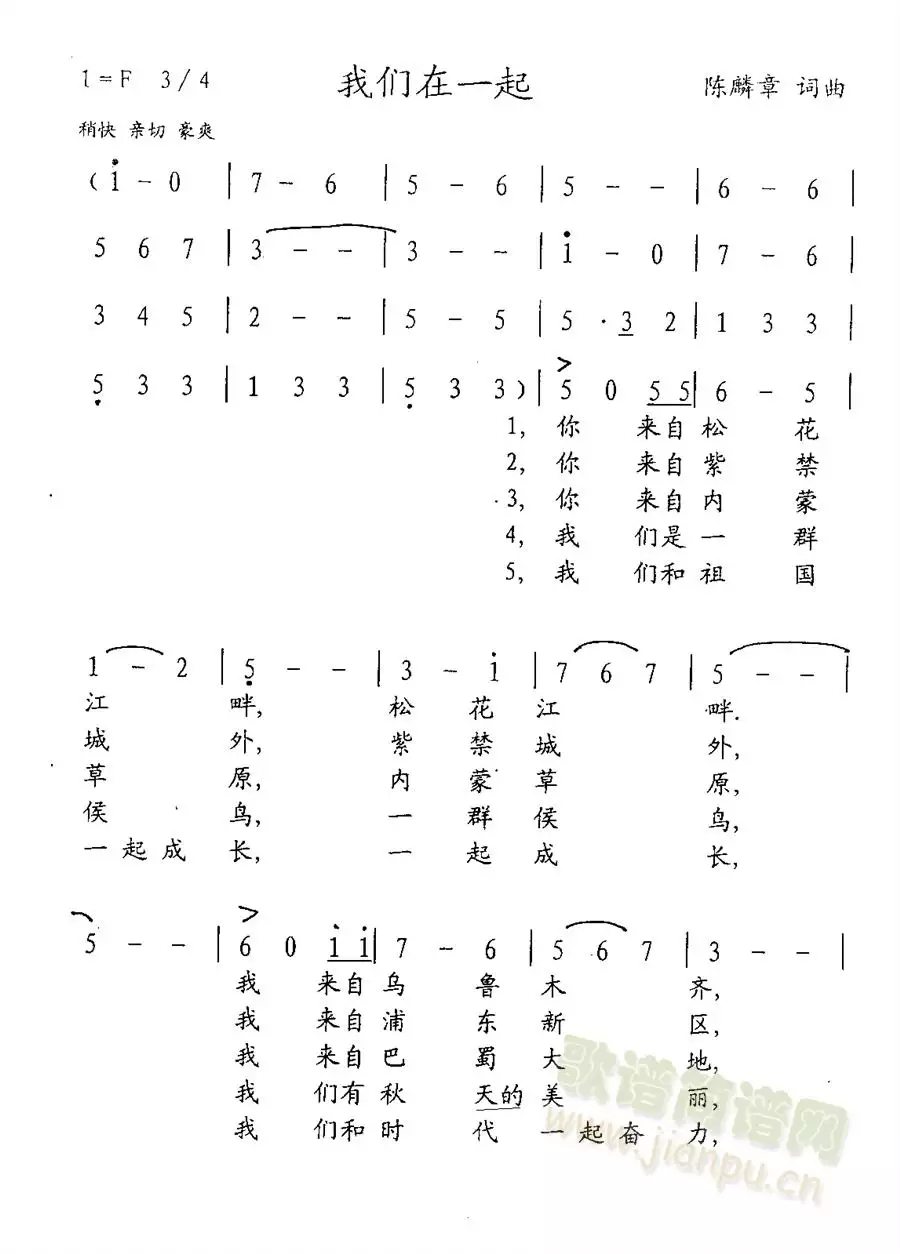 1=F 3/4 我们在一起 陈麟章 词曲
稍快 亲切 豪爽
(i - 0 | 7 - 6 | 5 - 6 | 5 - - | 6 - 6 |
5 6 7 | 3 - - | 3 - - | i - 0 | 7 - 6 |
3 4 5 | 2 - - | 5 - 5 | 5 · 3 2 | 1 3 3 |
5 3 3 | 1 3 3 | 5 3 3 ) | 5 0 5 5 | 6 - 5 |
1, 你 来自松 花
2, 你 来自紫 禁
3, 你 来自内 蒙
4, 我 们是一 群
5, 我 们和祖 国
1 - 2 | 5 - - | 3 - i | 7 6 7 | 5 - - |
江 畔, 松 花 江 畔.
城 外, 紫 禁 城 外,
草 原, 内 蒙 草 原,
侯 鸟, 一 群 侯 鸟,
一 起 成 长, 一 起 成 长,
5 - - | 6 0 i i | 7 - 6 | 5 6 7 | 3 - - |
我 来自乌 鲁 木 齐,
我 来自浦 东 新 区,
我 来自巴 蜀 大 地,
我 们有秋 天的 美 丽,
我 们和时 代 一 起 奋 力,
歌谱简谱网
www.jianpu.cn